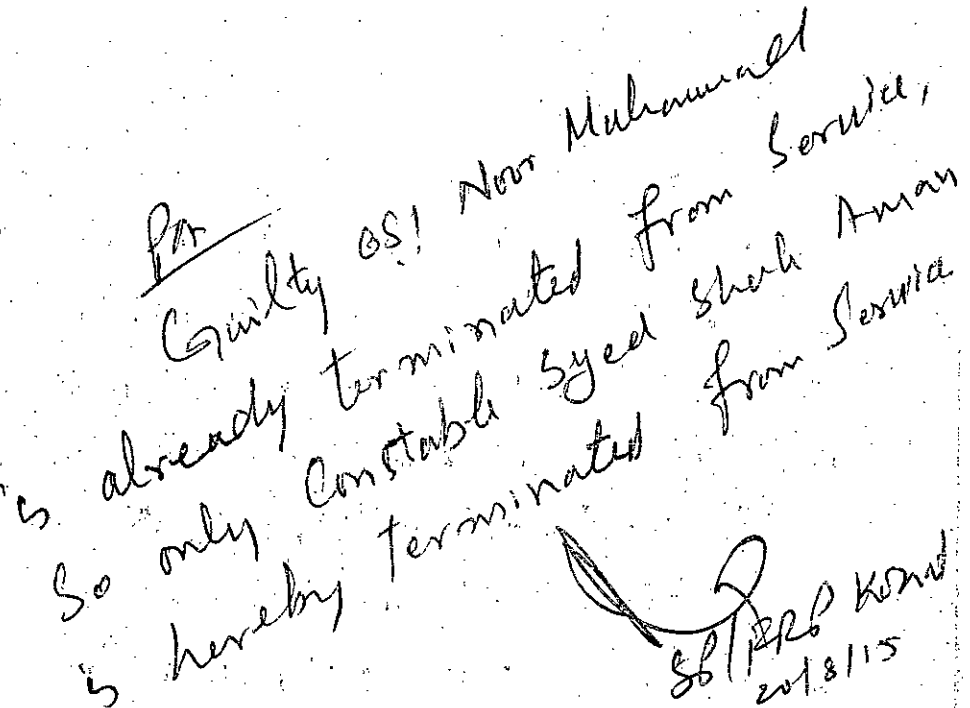 Guilty OSI Noor Muhammad
is already terminated from Service,
So only Constable Syed Shah Aman
is hereby terminated from Service
SP/FRP
20/8/15